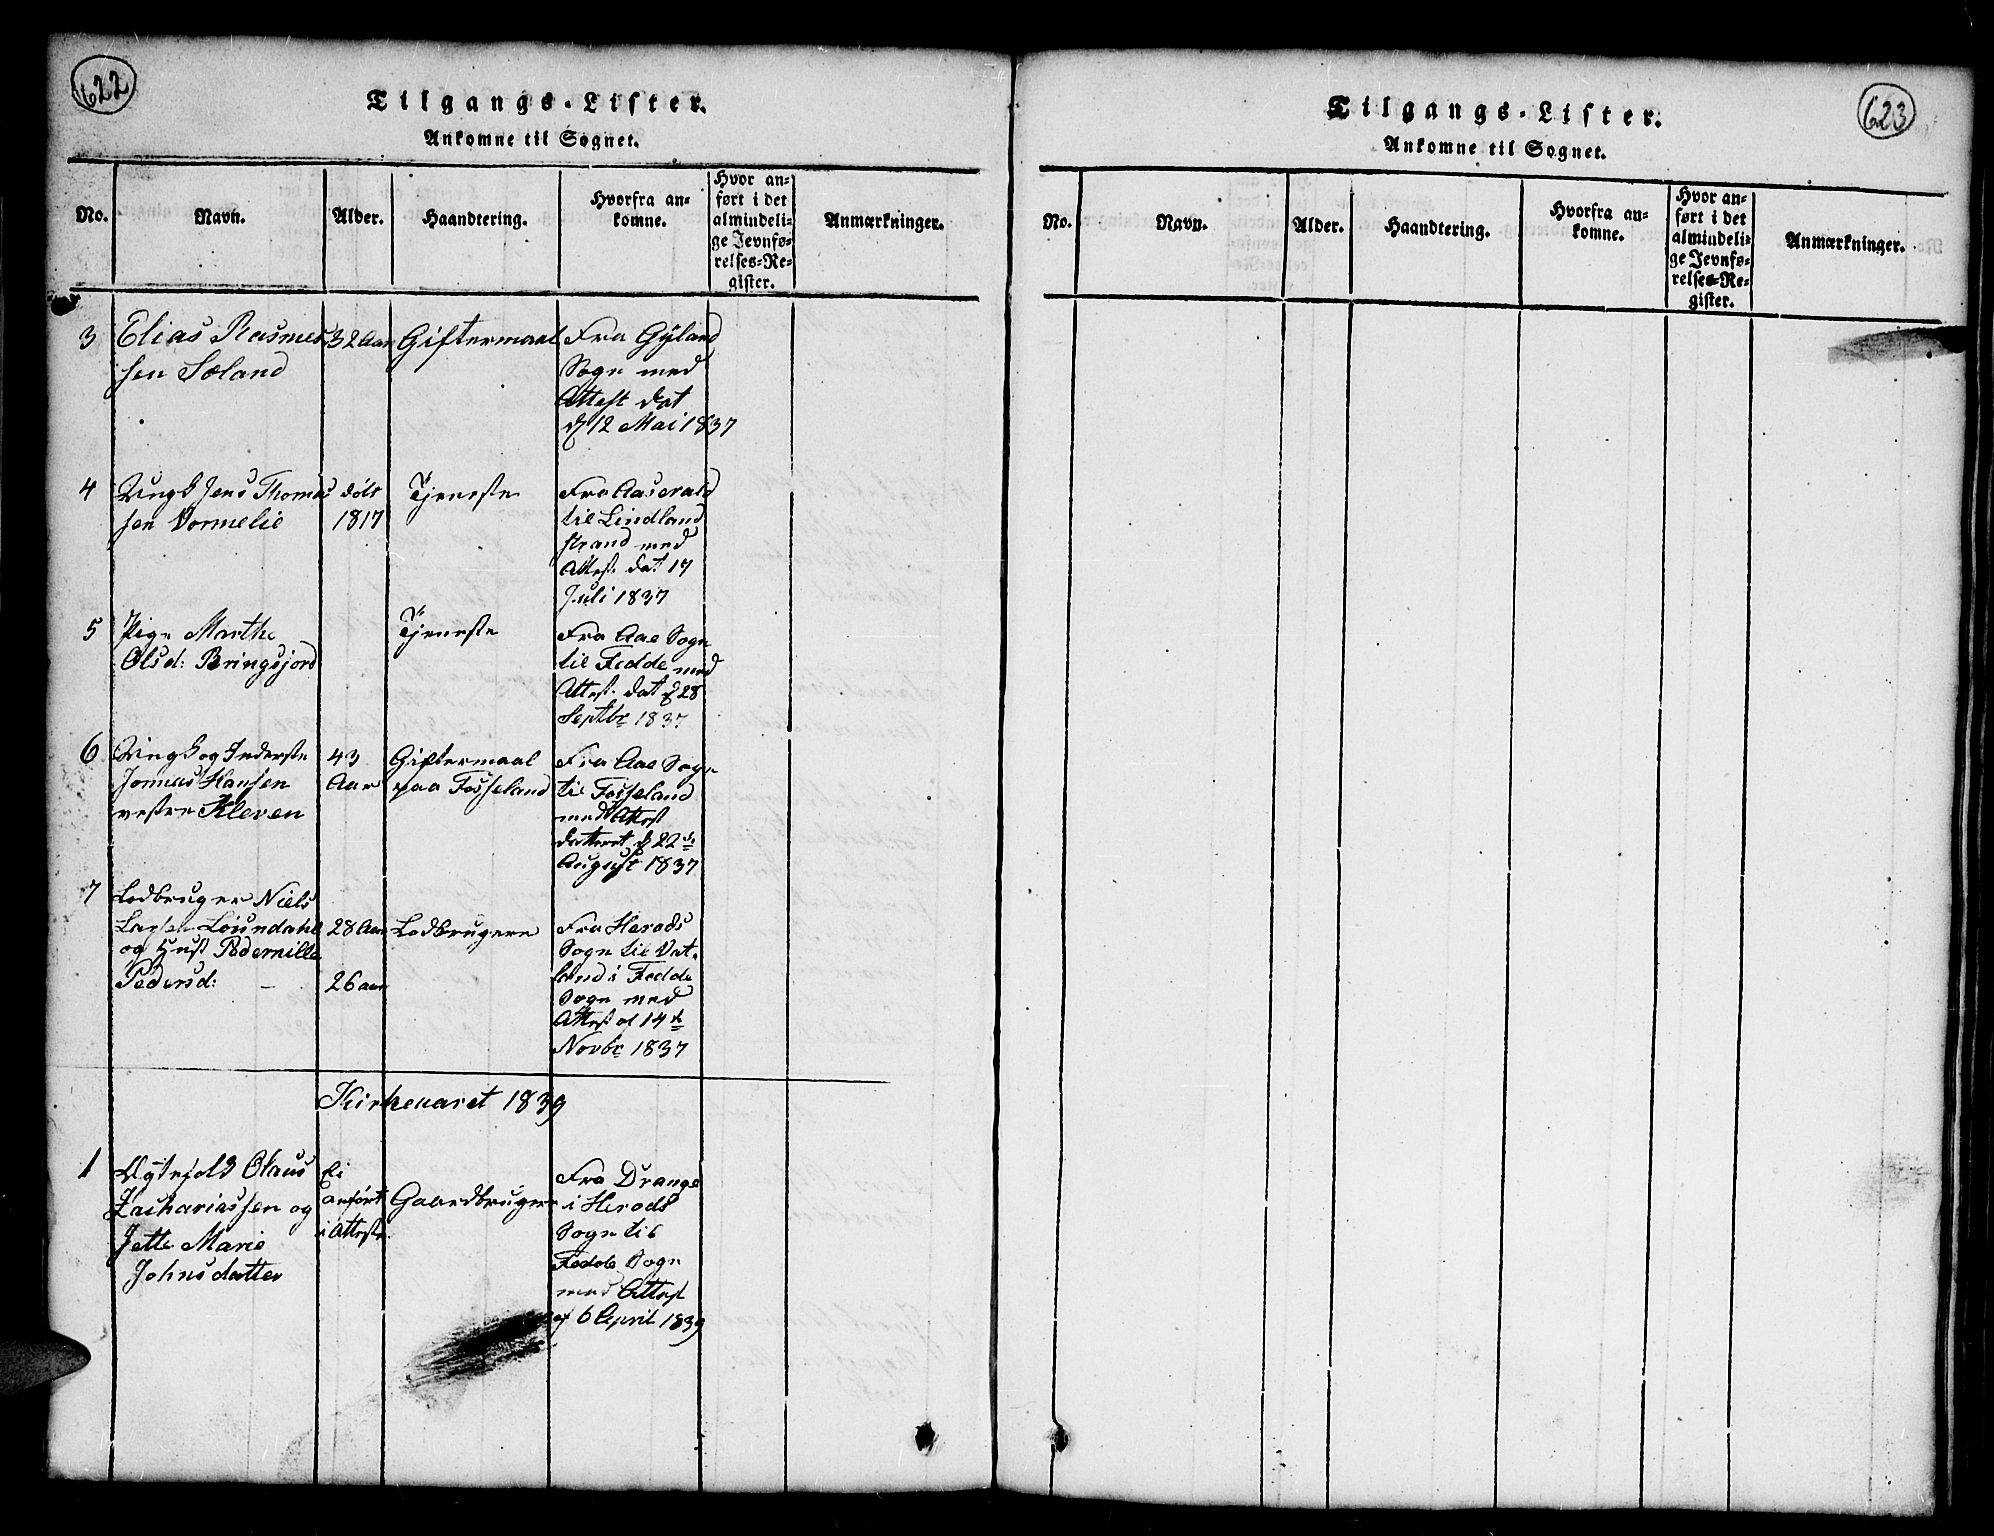 622
Tilgangs-Lister.
Ankomne til Sognet.
No. Navn. Alder. Haandtering. Hvorfra ankomne. Hvor anført i det almindelige Jevnførelses-Register. Anmærkninger.
3 Elias Rasmus 32 Aar Giftermaal Fra Gyland
sen Soland Sogn med
Attest dat
d 12 Mai 1837
4 Ungk Jens Thomas døbt Tjeneste Fra Aaserald
sen Vormelie 1817 til Lindland
strand med
Attest. dat 17
Juli 1837
5 Pige Marthe Tjeneste Fra Aae Sogn
Olsd: Bringsjord til Fedde med
Attest. dat d 28
Septbr 1837
6 Ungk og Inderste 43 Giftermaal Fra Aae Sogn
Jonnas Hansen Aar paa Fosseland til Fosseland
vestre Kleven med Attest
datteret d 22de
August 1837
7 Lodbruger Niels
Larsen Løundahl 28 Aar Lodbrugere Fra Herods
og Hust Pedernille Sogn til Vat-
Pedersd: - 26 aar land i Fedde
Sogn med
Attest af 14de
Novbr 1837
Kirkeuaret 1839
1 Olaus Ei Fra Drange
Zachariassen og anført Gaardbruger i Herods
Jette Marie i Attest. Sogn til
Johnsdatter Fedde Sogn
med Attest
af 6 April 1839
623
Tilgangs-Lister.
Ankomne til Sognet.
No. Navn. Alder. Haandtering. Hvorfra ankomne. Hvor anført i det almindelige Jevnførelses-Register. Anmærkninger.